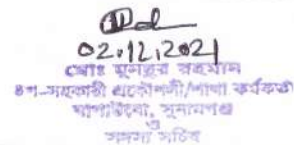 02.12.2021
মোঃ মুনছুর রহমান
উপ-সহকারী প্রকৌশলী/শাখা কর্মকর্তা
পাপাউবো, সুনামগঞ্জ
ও
সদস্য সচিব